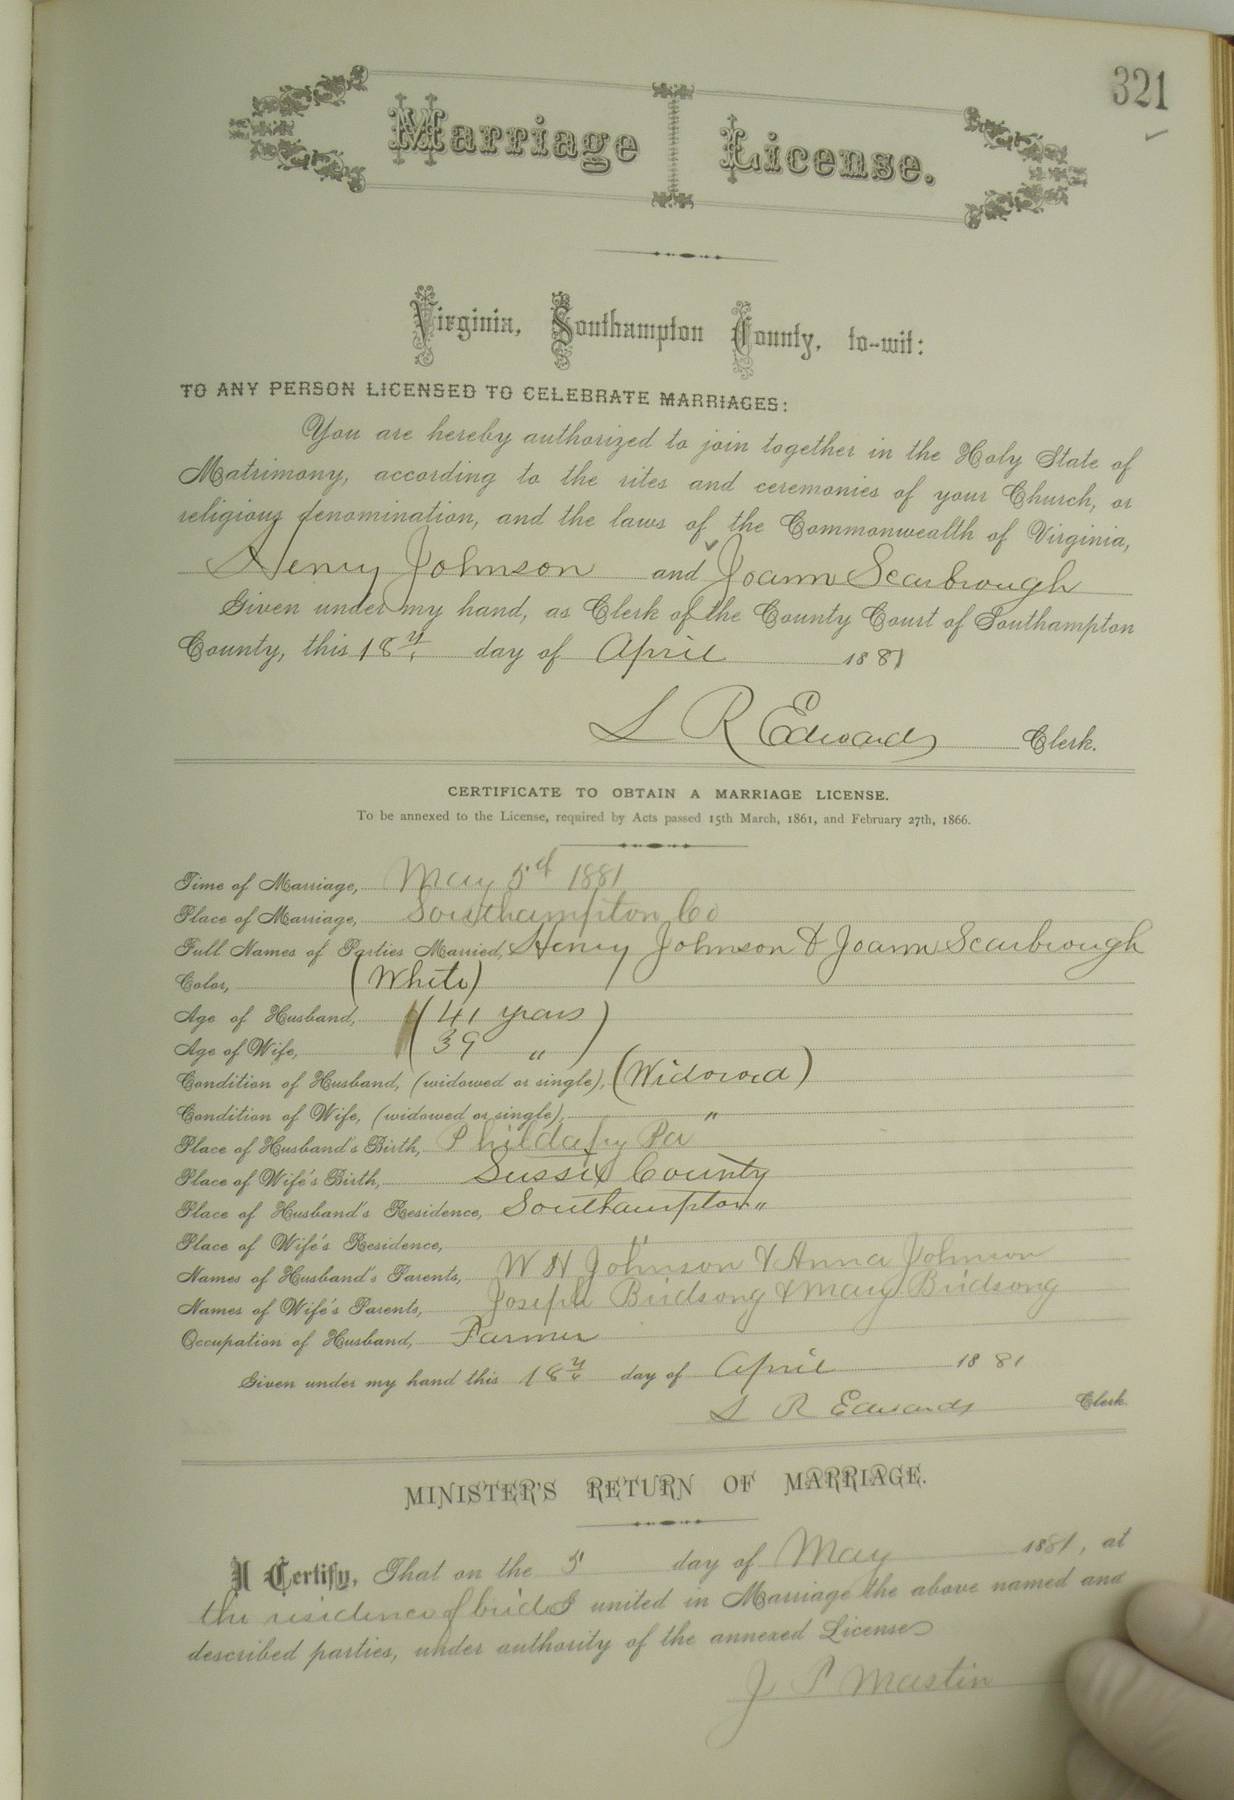 321
Marriage License.
Virginia, Southampton County, to-wit:
TO ANY PERSON LICENSED TO CELEBRATE MARRIAGES:
You are hereby authorized to join together in the Holy State of
Matrimony, according to the rites and ceremonies of your Church, or
religious denomination, and the laws of the Commonwealth of Virginia,
Henry Johnson and Joann Scarbrough
Given under my hand, as Clerk of the County Court of Southampton
County, this 18th day of April 1881
L R Edwards Clerk.
CERTIFICATE TO OBTAIN A MARRIAGE LICENSE.
To be annexed to the License, required by Acts passed 15th March, 1861, and February 27th, 1866.
Time of Marriage, May 5th 1881
Place of Marriage, Southampton Co
Full Names of Parties Married, Henry Johnson & Joann Scarbrough
Color, (White)
Age of Husband, (41 years)
Age of Wife, (39 ")
Condition of Husband, (widowed or single), (Widowed)
Condition of Wife, (widowed or single), "
Place of Husband's Birth, Phildafy Pa
Place of Wife's Birth, Sussex County
Place of Husband's Residence, Southampton "
Place of Wife's Residence, "
Names of Husband's Parents, W H Johnson & Anna Johnson
Names of Wife's Parents, Joseph Birdsong & Mary Birdsong
Occupation of Husband, Farmer
Given under my hand this 18th day of April 1881
L R Edwards Clerk.
MINISTER'S RETURN OF MARRIAGE.
I Certify, That on the 5 day of May 1881, at
the residence of bride I united in Marriage the above named and
described parties, under authority of the annexed License
J P Mastin